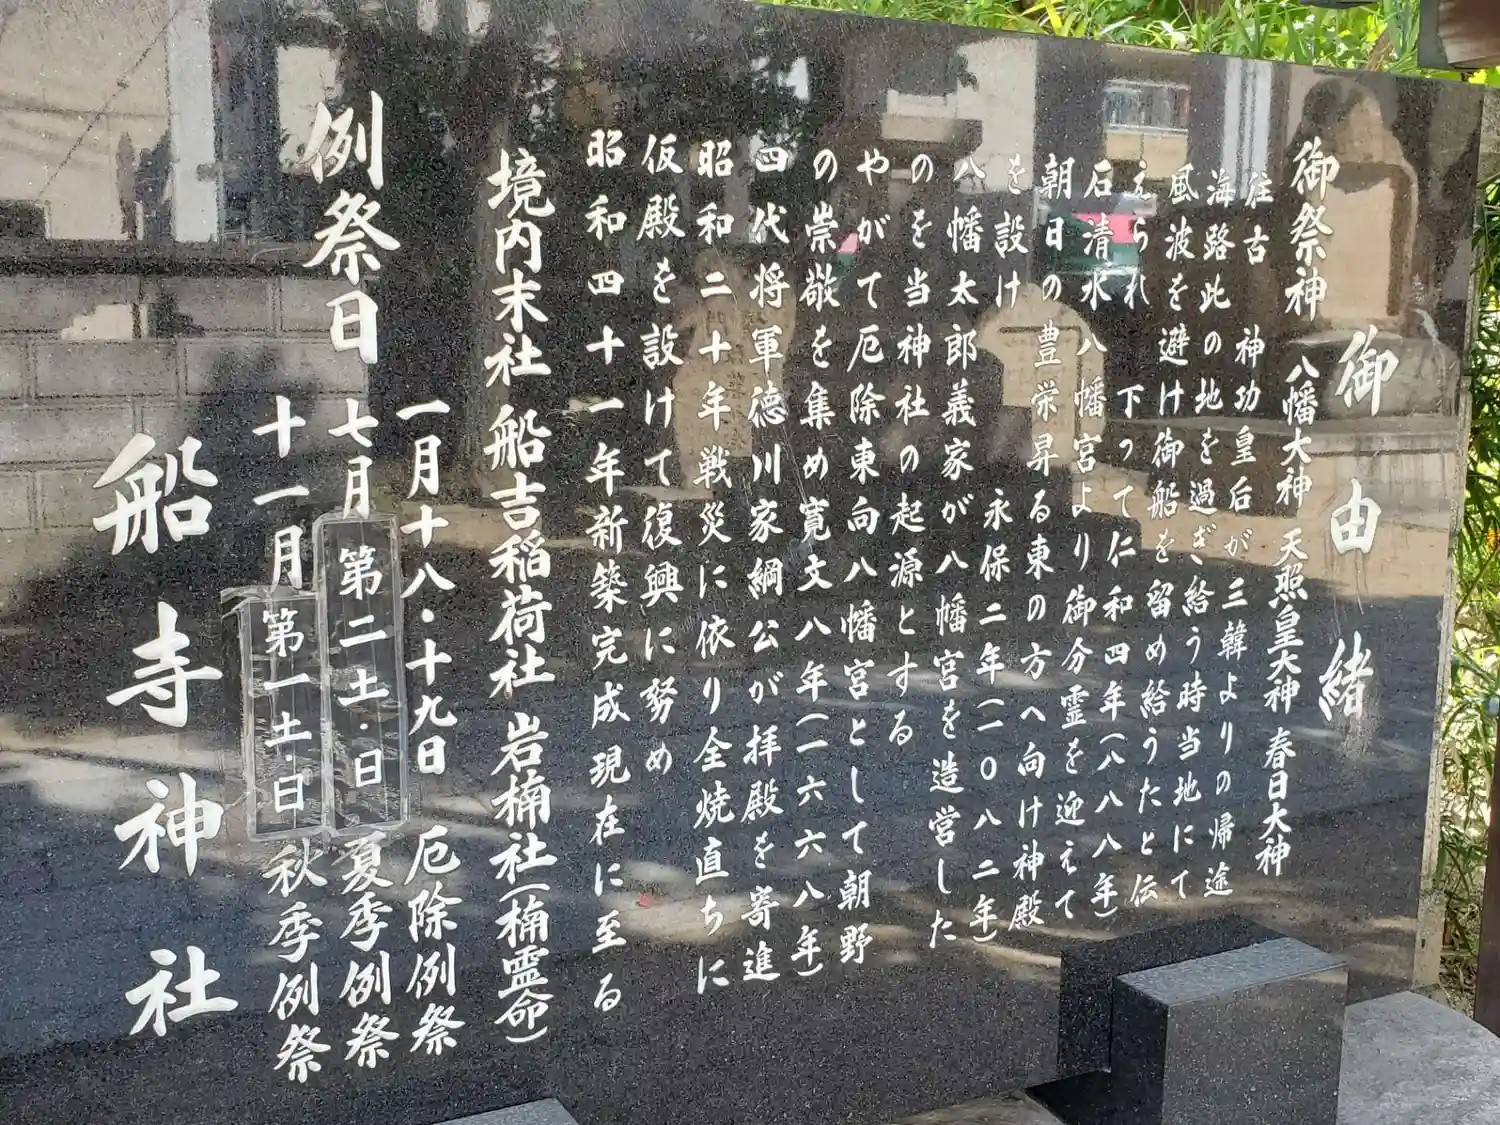 御由緒
御祭神 八幡大神 天照皇大神 春日大神
往古 神功皇后が三韓よりの帰途
海路此の地を過ぎ給う時当地にて
風波を避け御船を留め給うたと伝
えられ 下って仁和四年(八八八年)
石清水八幡宮より御分霊を迎えて
朝日の豊栄昇る東の方へ向け神殿
を設け 永保二年(一〇八二年)
八幡太郎義家が八幡宮を造営した
のを当神社の起源とする
やがて厄除東向八幡宮として朝野
の崇敬を集め寛文八年(一六六八年)
四代将軍徳川家綱公が拝殿を寄進
昭和二十年戦災に依り全焼直ちに
仮殿を設けて復興に努め
昭和四十一年新築完成現在に至る
境内末社 船吉稲荷社 岩楠社(楠霊命)
例祭日
一月十八・十九日 厄除例祭
七月 第二土・日 夏季例祭
十一月 第一土・日 秋季例祭
船寺神社